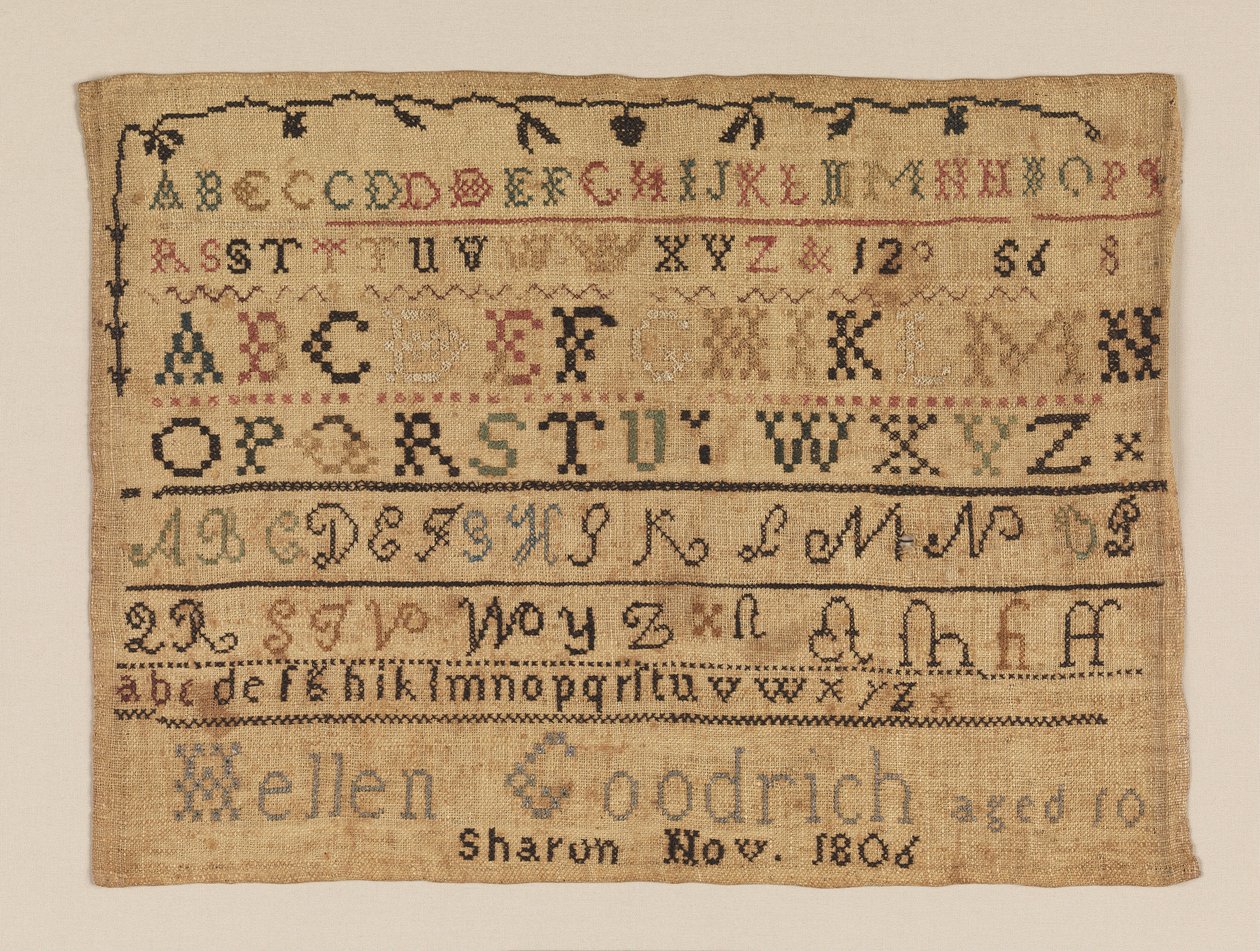 A B C C C D D D E F G H I J K L H M N H I O P Q
R S S T T T U V W W X V Z & 1 2 0 5 6 8
A B C D E F G H I K L M N
O P Q R S T U V W X Y Z x
A B C D E F G H I K L M N O P
Q R S T V W O y Z x ſt ſh ﬁ ſſ
a b c d e f g h i k l m n o p q r ſ t u v w x y z x
Hellen Goodrich aged 10
Sharon Nov. 1806